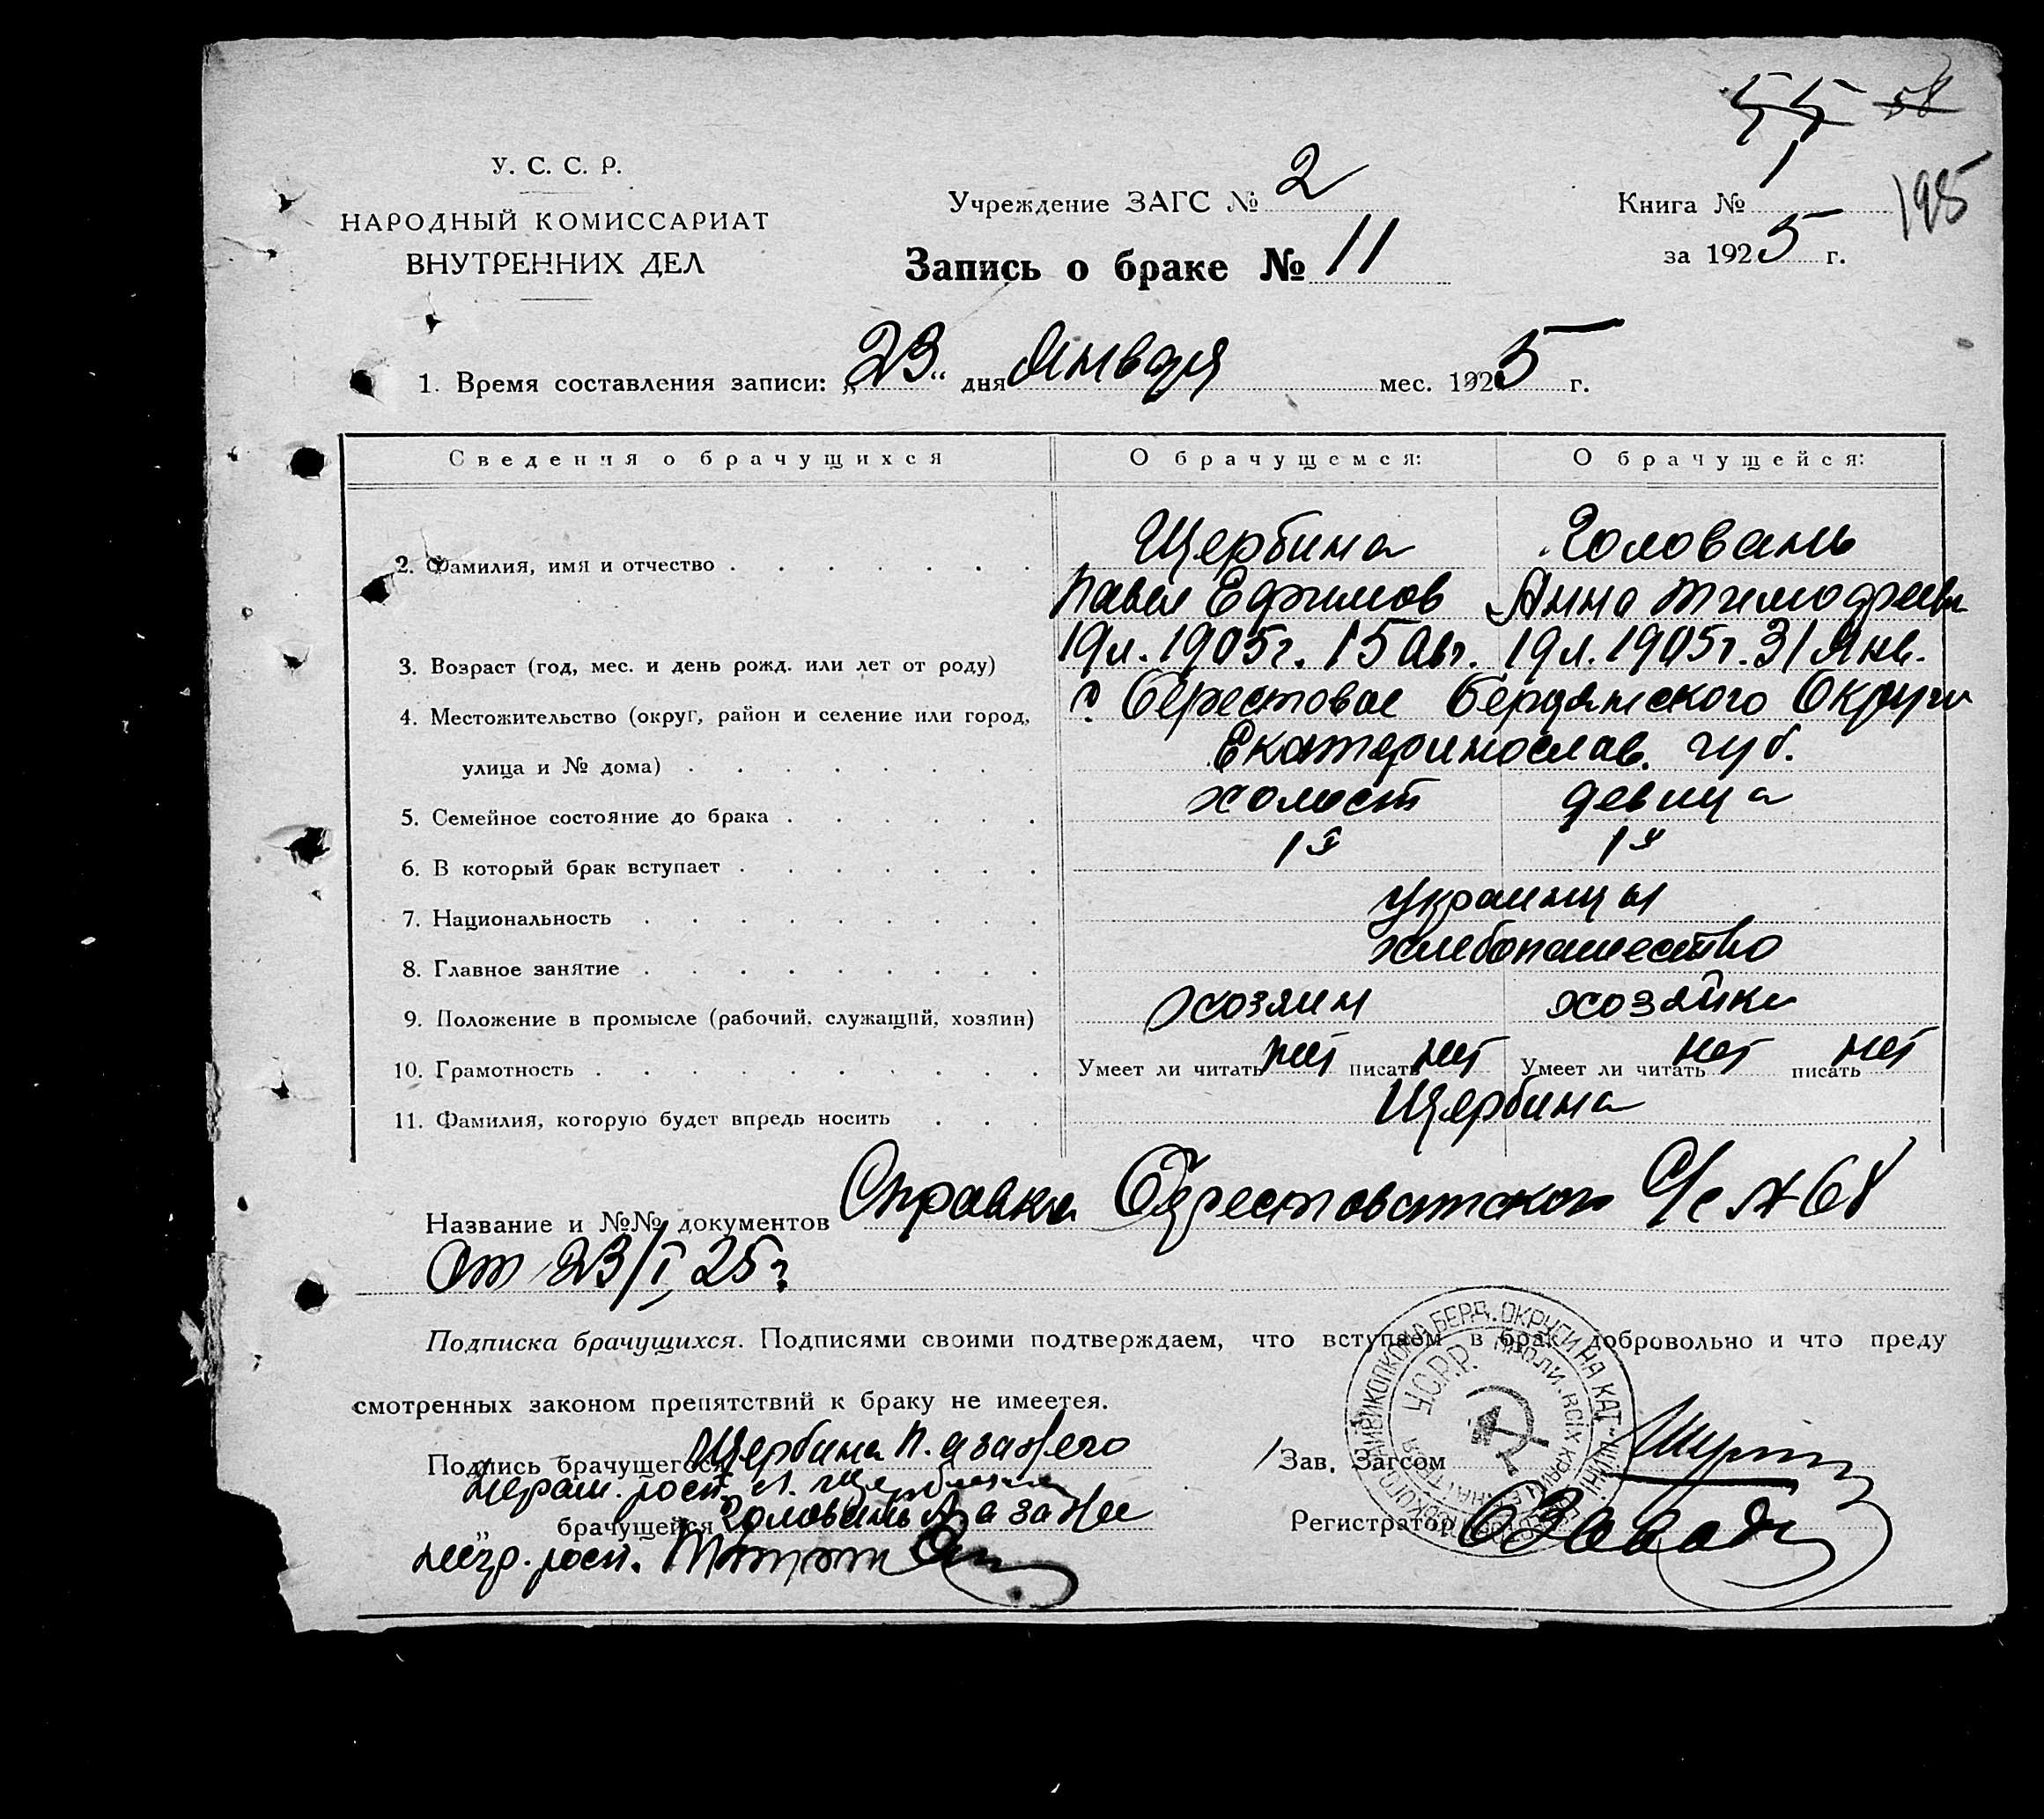 55 58
У. С. С. Р.
НАРОДНЫЙ КОМИССАРИАТ
ВНУТРЕННИХ ДЕЛ
Учреждение ЗАГС № 2
Книга № 1
195
за 1925 г.
Запись о браке № 11
1. Время составления записи: „23“ дня Января мес. 1925 г.
Сведения о брачущихся О брачущемся: О брачущейся:
2. Фамилия, имя и отчество Щербина Головань
Павел Ефимов Анна Тимофеевн
3. Возраст (год, мес. и день рожд. или лет от роду) 19 л. 1905 г. 15 Авг. 19 л. 1905 г. 31 Янв.
4. Местожительство (округ, район и селение или город, с Берестовое Бердянского Округи
улица и № дома) Екатеринослав. губ.
5. Семейное состояние до брака холост девица
6. В который брак вступает 1й 1й
7. Национальность украинцы
8. Главное занятие хлебопашество
9. Положение в промысле (рабочий, служащий, хозяин) хозяин хозяйка
10. Грамотность Умеет ли читать нет писать нет Умеет ли читать нет писать нет
11. Фамилия, которую будет впредь носить Щербина
Название и №№ документов Справка Берестоватского С/с № 68
от 23/I 25 г
Подписка брачущихся. Подписями своими подтверждаем, что вступаем в брак добровольно и что преду
смотренных законом препятствий к браку не имеется.
Подпись брачущегося Щербина П. а за него
неграм. росп. Щербина
„ брачущейся Головань А а за нее
негр. росп.
Зав. Загсом
Регистратор
У.С.Р.Р.
БЕРД. ОКРУГИ НА КАТ